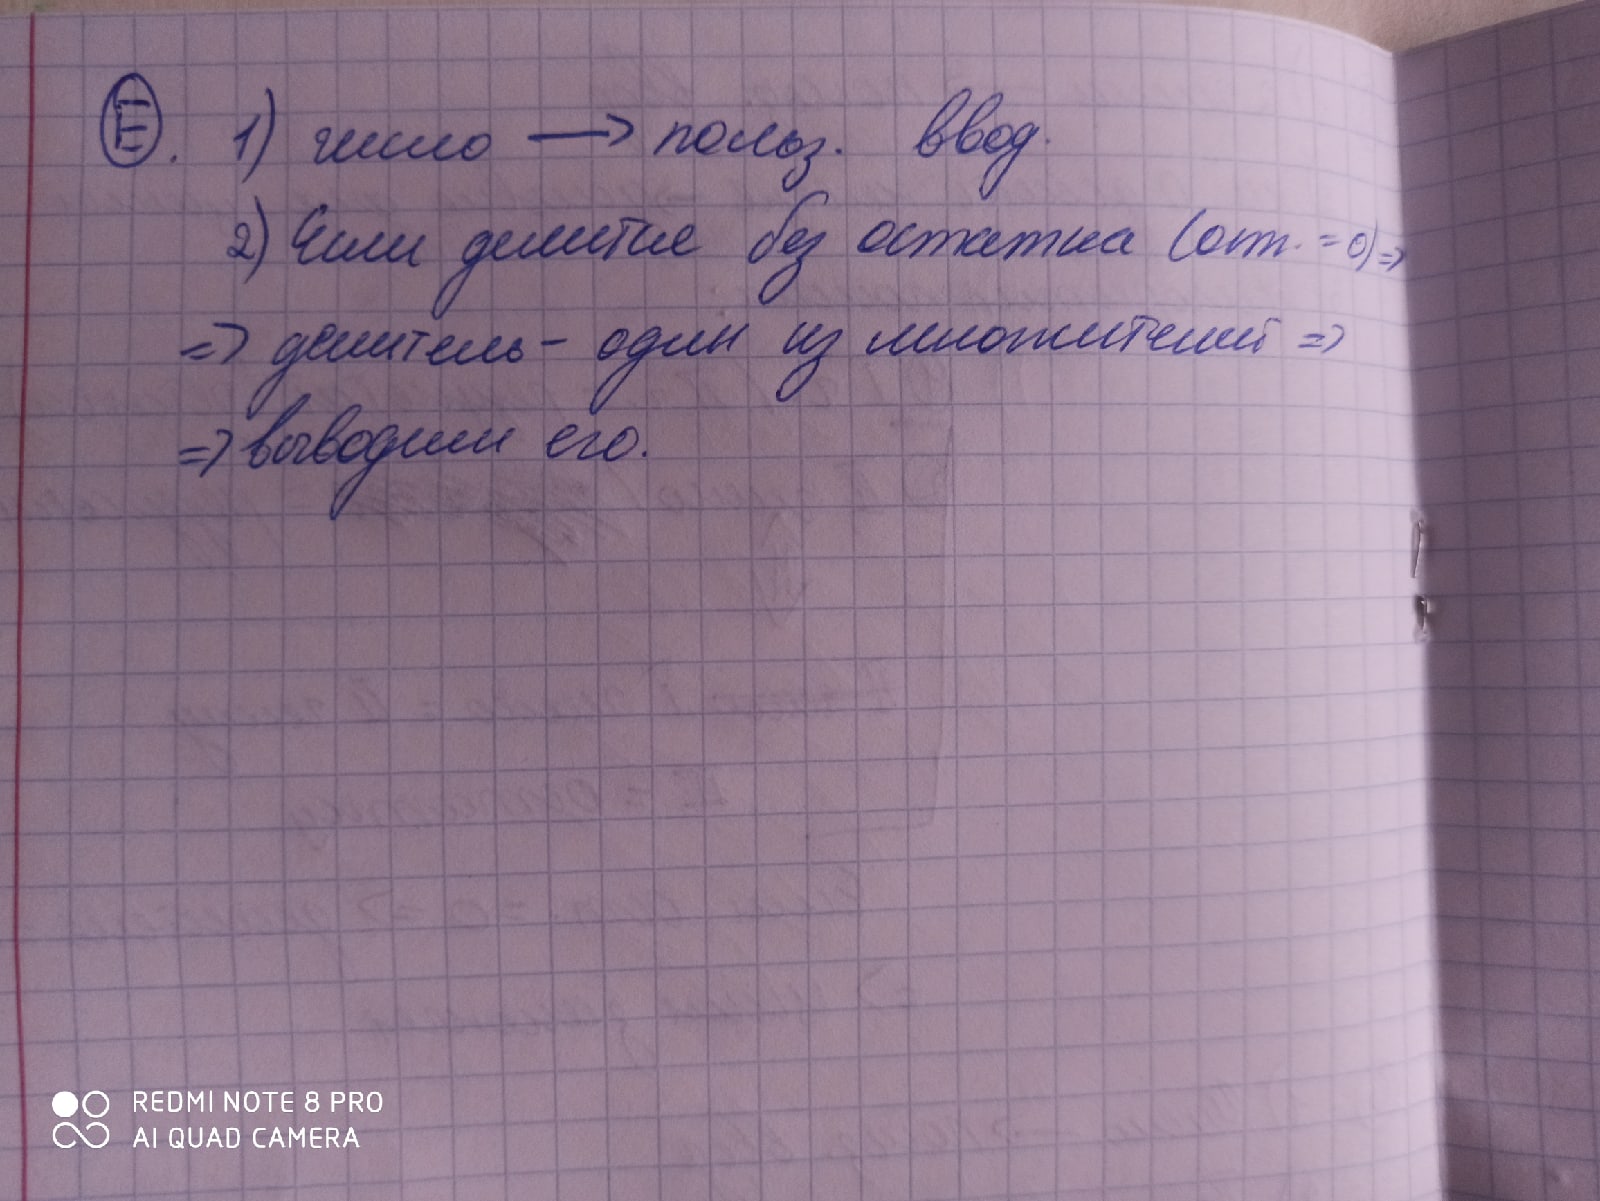 Е. 1) число → польз. ввод.
2) Если делится без остатка (ост. = 0) =>
=> делитель - один из множителей =>
=> выводим его.
REDMI NOTE 8 PRO
AI QUAD CAMERA